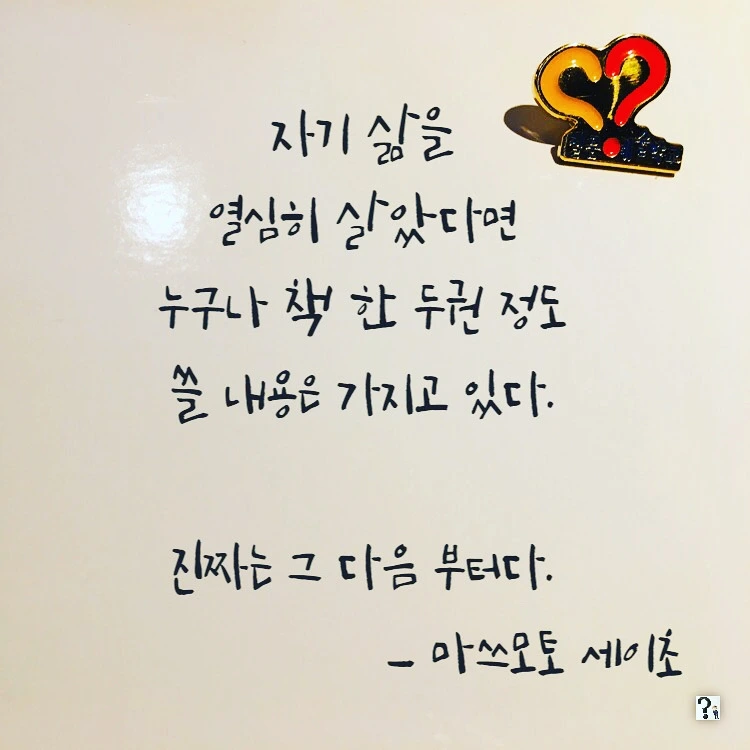 자기 삶을
열심히 살았다면
누구나 책 한 두권 정도
쓸 내용은 가지고 있다.
진짜는 그 다음 부터다.
- 마쓰모토 세이초
?